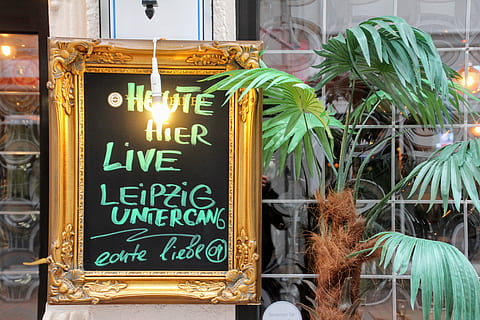 HEUTE
HIER
LIVE
LEIPZIG
UNTERGANG
echte liebe